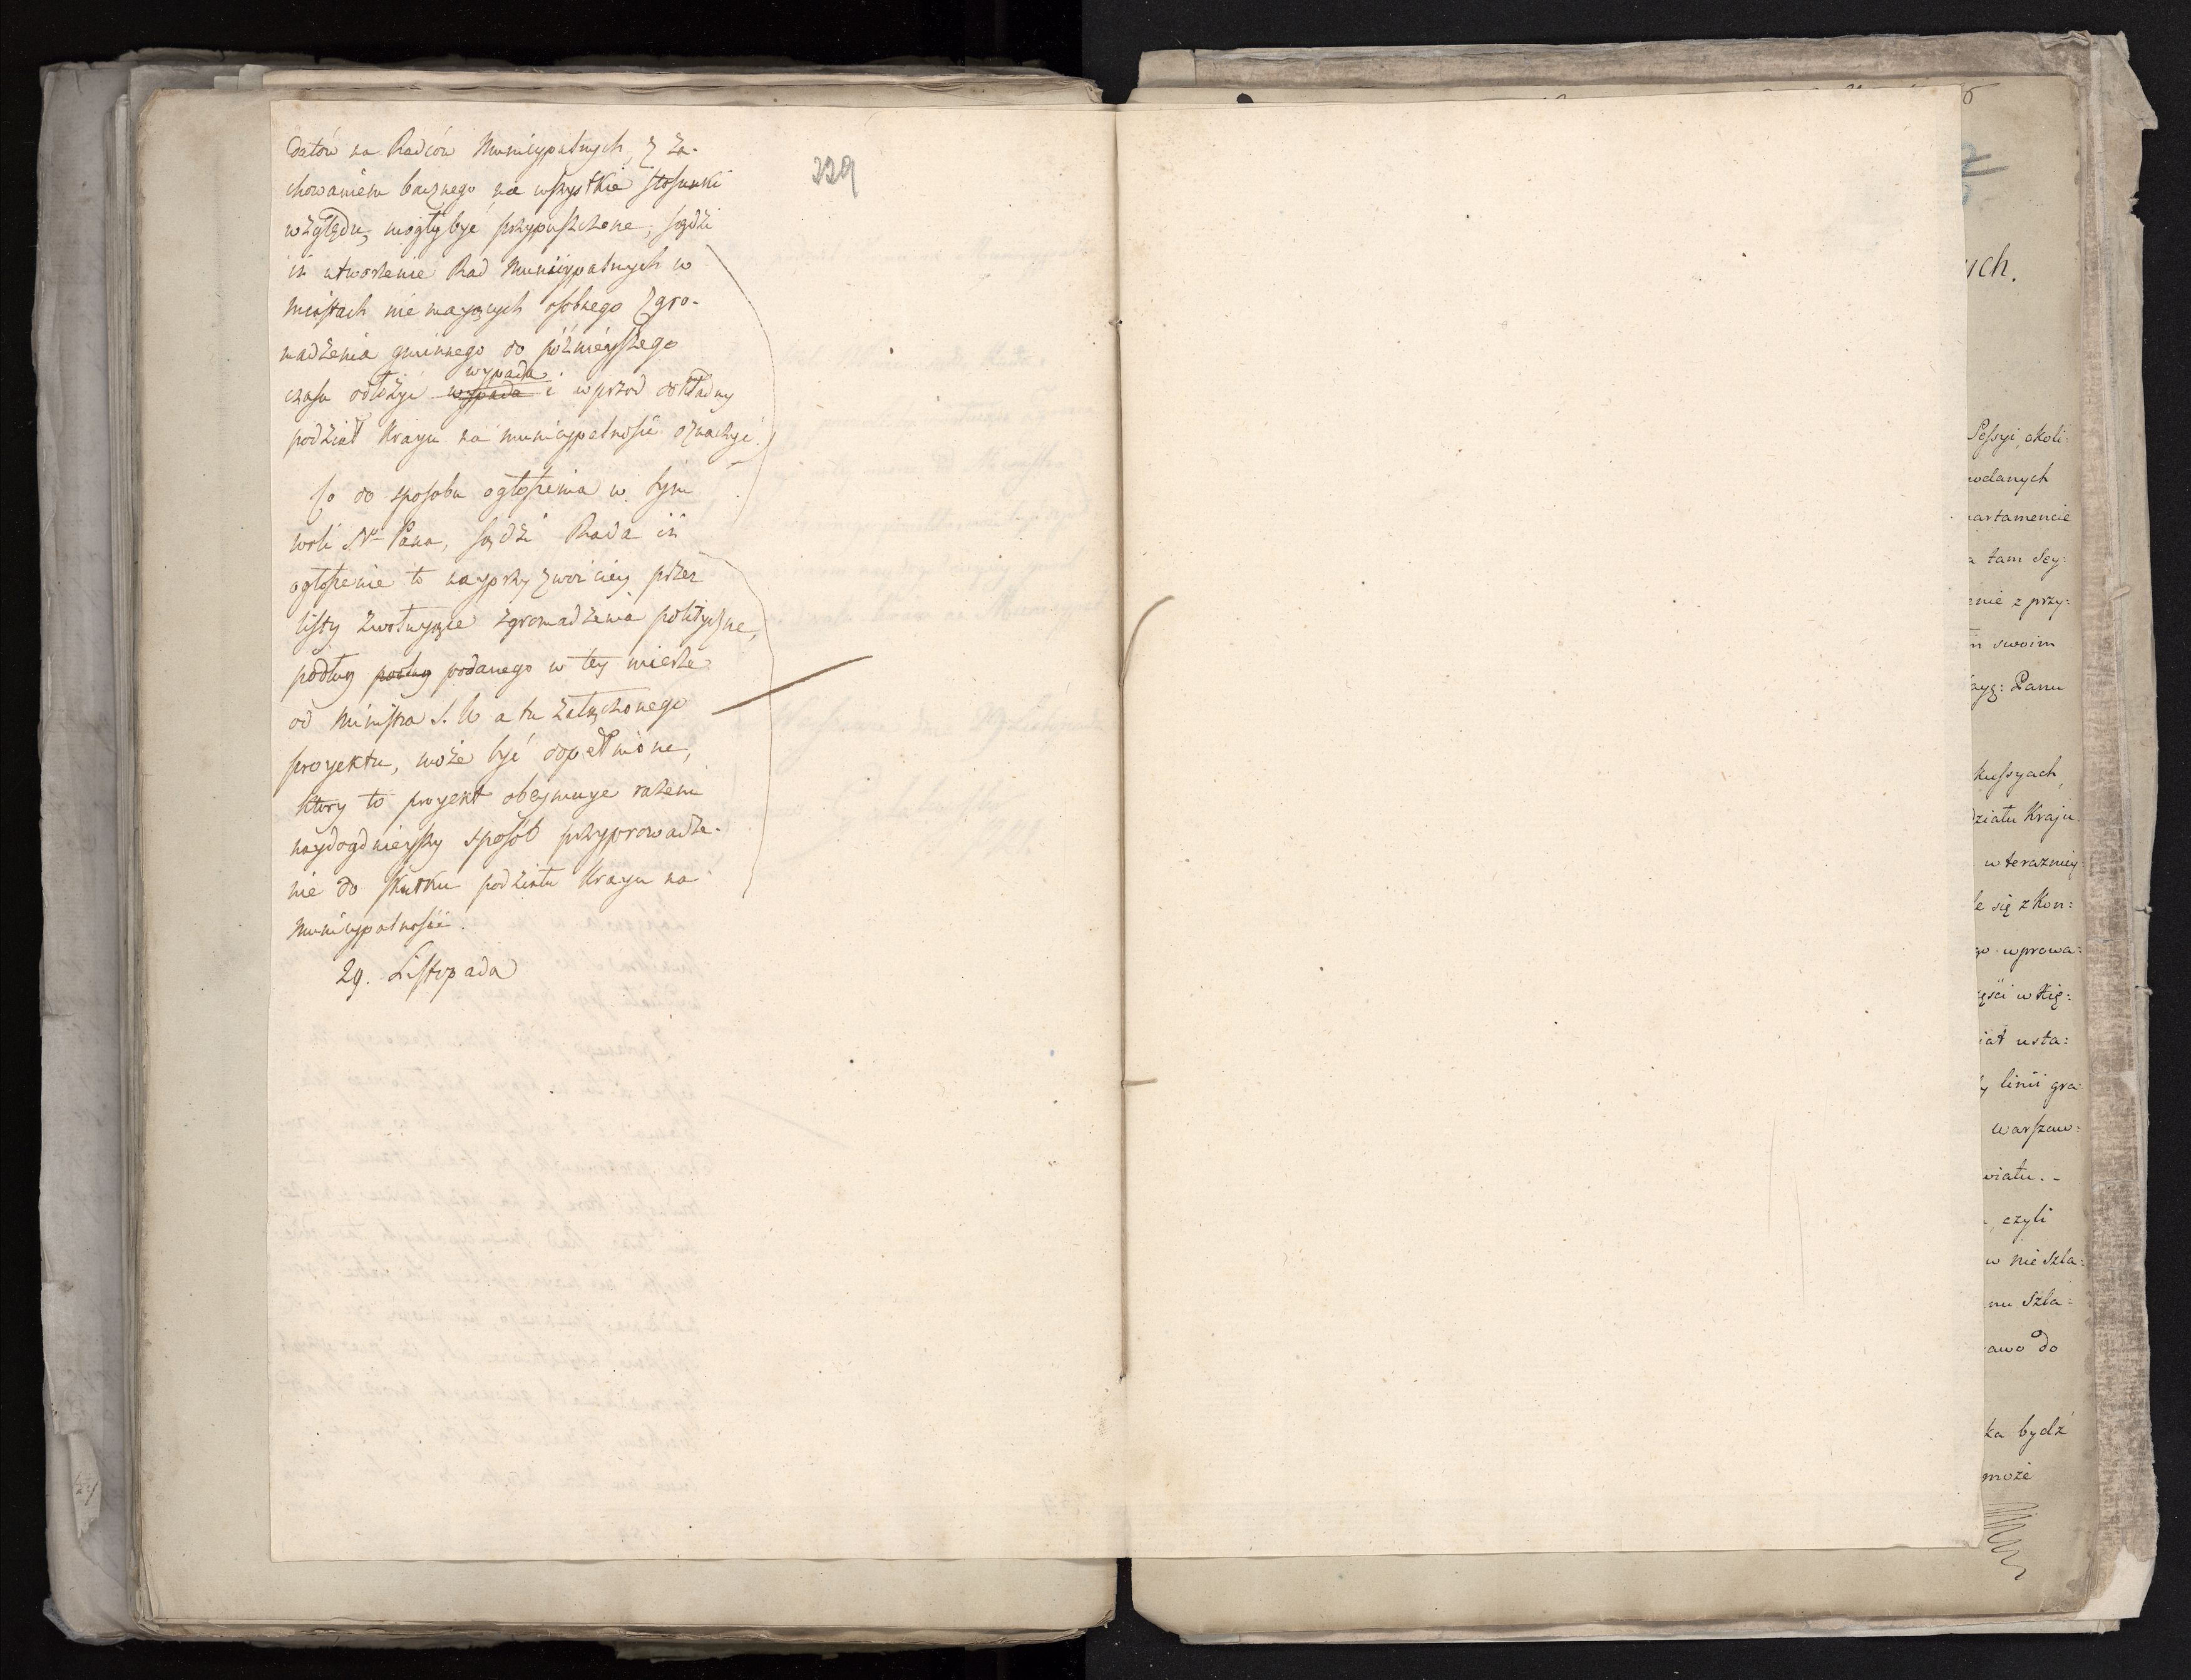 datów na Radców Municypalnych, z za-
chowaniem bacznego na wszystkie stosunki
względu, mogły być przypuszczone, sądzi
iż utworzenie Rad Municypalnych w
miastach nie maiących osobnego Zgro-
madzenia gminnego do późnieyszego
czasu odłożyć wypada wypada i wprzod dokładny
podział Kraju na municypalności oznaczyć.
Co do sposobu ogłoszenia w tym
woli N. Pana, sądzi Rada iż
ogłoszenie to nayprzyzwoiciey przez
listy zwołuiące zgromadzenia polityczne,
podług podług podanego w tey mierze
od Ministra S. W a tu załączonego
proyektu, może być dopełnione,
ktory to proyekt obeymuye razem
naydogdnieyszy sposób przyprowadze-
nie do skutku podziału Kraju na
Municypalności.
29. Listopada
229
ych.
Sessyi, okoli:
podanych
partamencie
a tam Sey:
enie z przy:
swoim
Panu
kussyach,
działu Kraju
w terazniey
le się z Kon:
go wprowa:
ęści w Xię:
iał usta:
y linii gra:
warszaw:
wiatu. -
czyli
w nie Szla:
nu Szla:
awo do
ka bydź
może